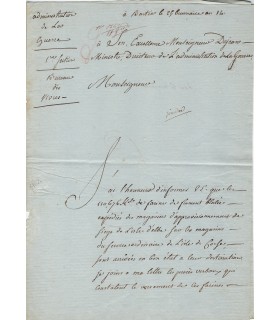 administration
de la
Guerre
1ere Section
Bureau
des
Vivres
à Bastia le 25 brumaire an 14
à Son Excellence Monseigneur Dejean
Ministre, Directeur de l'administration de la Guerre
Monseigneur
J'ai l'honneur d'informer V. E. que les
de farine de froment
expédiés des magasins d'approvisionnement de
siège de l'isle d'elbe sur les magasins
du service ordinaire de l'isle de Corse
sont arrivées en bon état à leur destination
je joins à ma lettre les procès verbaux qui
constatent le versement de ces farines